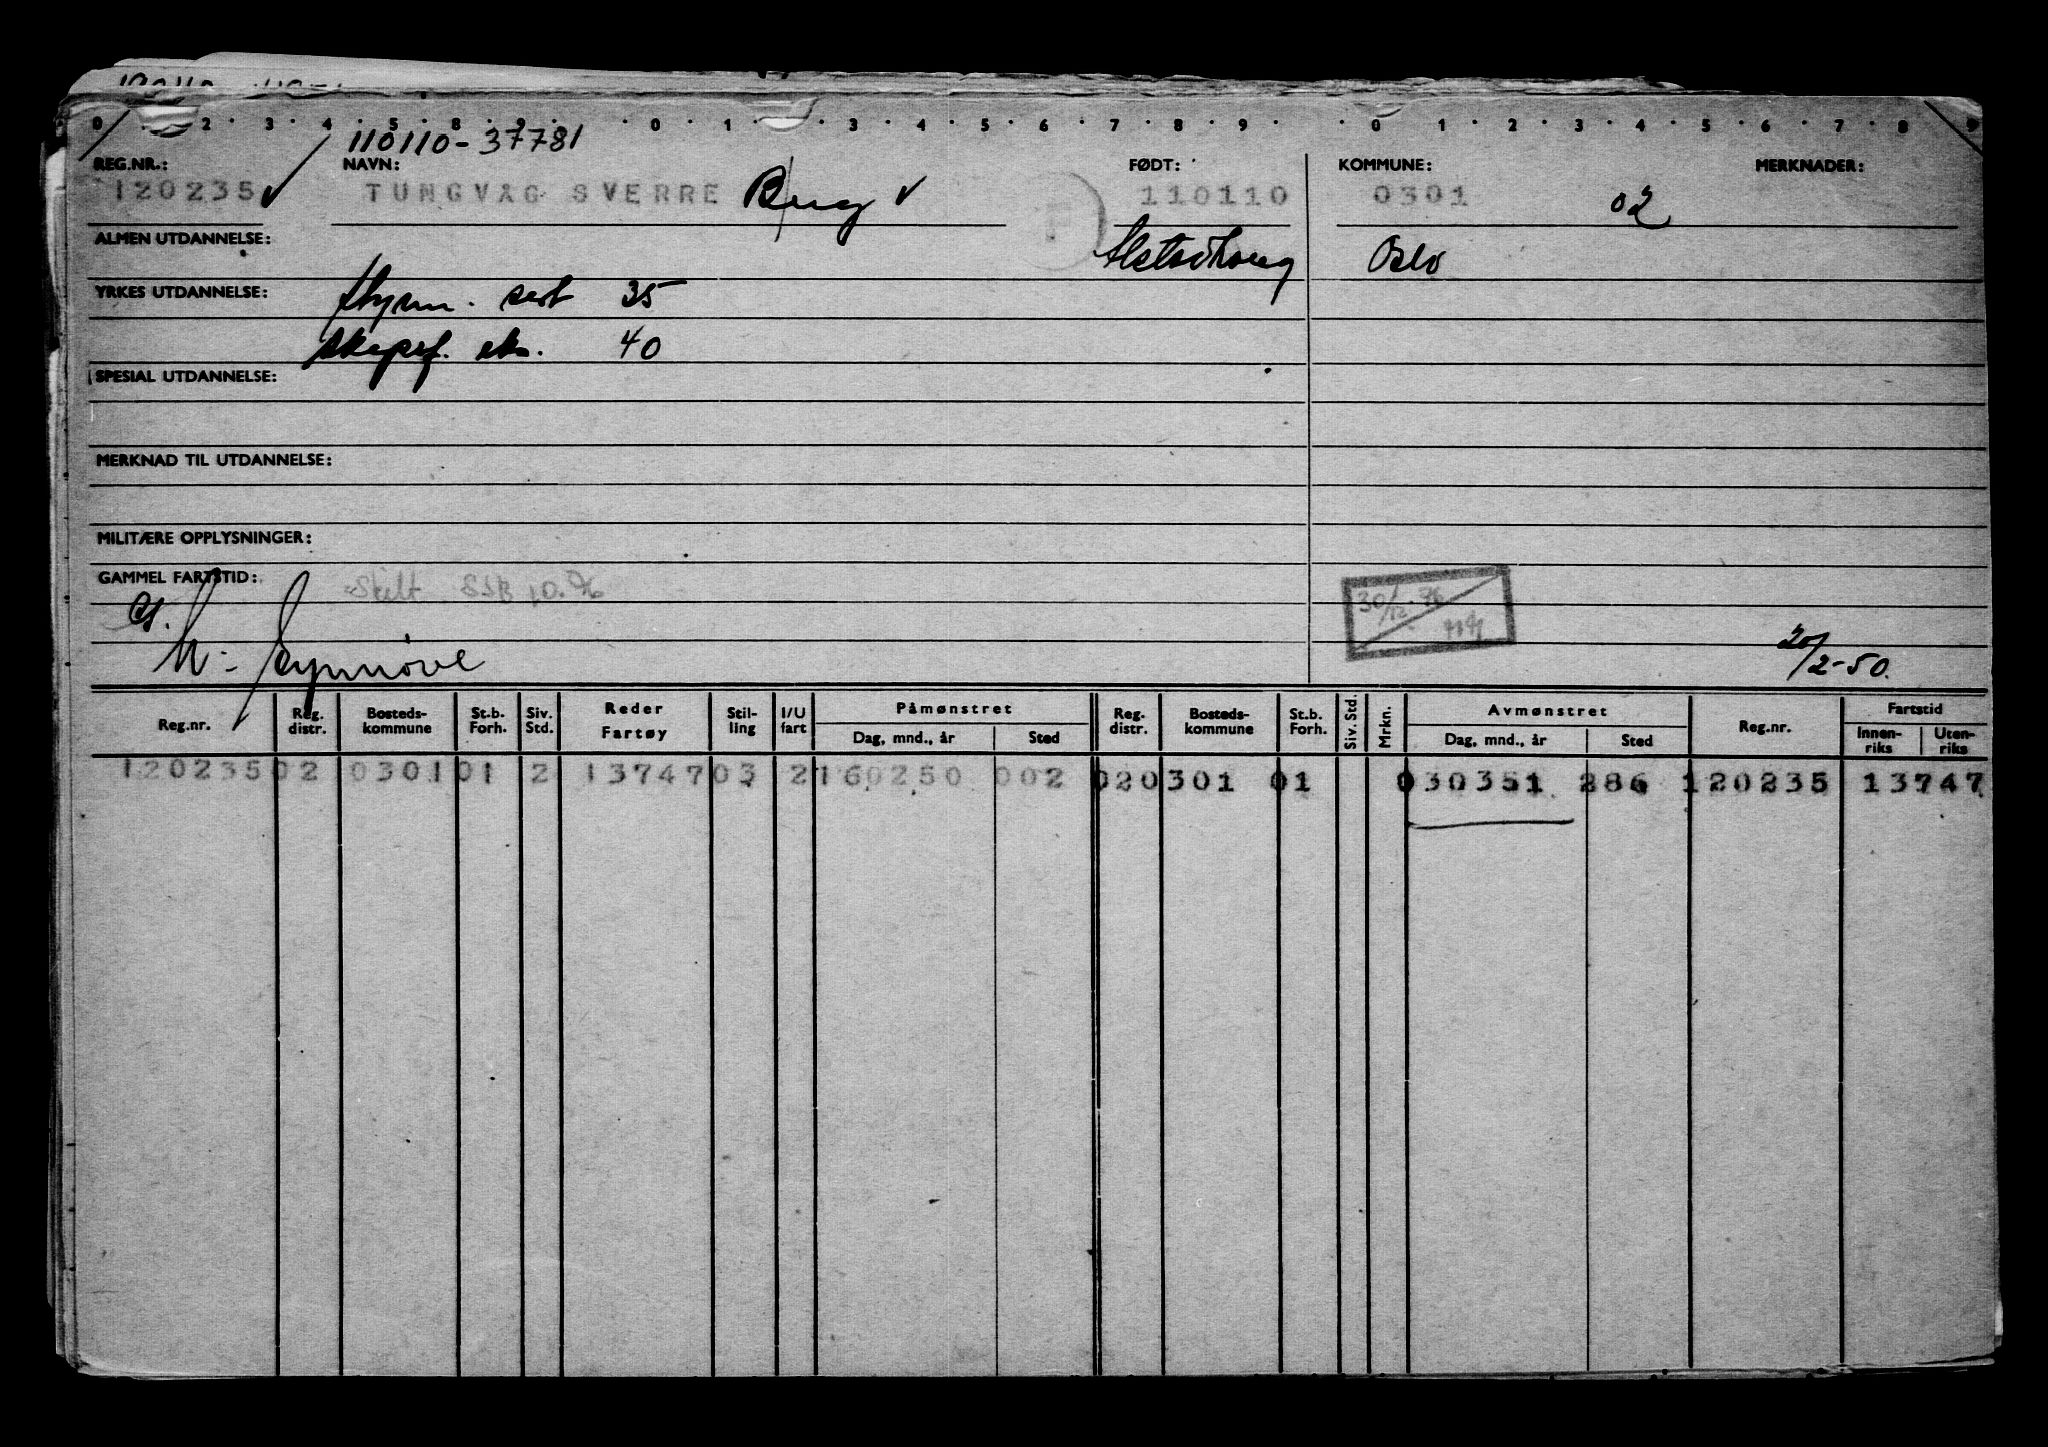 0 2 3 4 5 8 9 0 1 3 4 5 6 7 8 9 0 1 2 3 4 5 6 7 8 9
110110-37781
REG.NR.: NAVN: FØDT: KOMMUNE: MERKNADER:
120235 TUNGVAG SVERRE 110110 0301 02
ALMEN UTDANNELSE: Alstadhaug Oslo
YRKES UTDANNELSE: styrm. sert 35
skipsf. eks. 40
SPESIAL UTDANNELSE:
MERKNAD TIL UTDANNELSE:
MILITÆRE OPPLYSNINGER:
GAMMEL FARTSTID: Skilt
30/12.76
G.
M- Synnøve 20/2-50.
Reg.nr. Reg. distr. Bosteds-kommune St.b. Forh. Siv. Std. Reder Fartøy Stil-ling I/U fart Påmønstret Dag, mnd., år Sted Reg. distr. Bosteds-kommune St.b. Forh. Siv. Std. Mrkn. Avmønstret Dag, mnd., år Sted Reg.nr. Fartstid Innen-riks Uten-riks
120235 02 0301 01 2 13747 03 2 160250 002 02 0301 01 030351 286 120235 13747